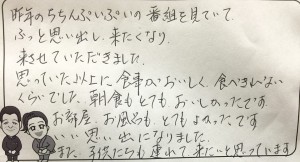 昨年のちちんぷいぷいの番組を見ていて、
ふっと思い出し、来たくなり、
来させていただきました。
思っていた以上に食事がおいしく、食べきれない
くらいでした。朝食もとても、おいしかったです
お部屋、お風呂も、とてもよかったです
いい思い出になりました。
また、子供たちも連れて来たいと思っています